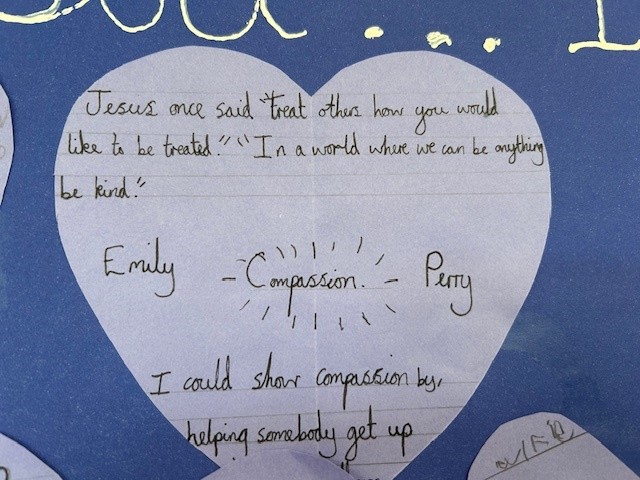 Jesus once said "treat others how you would
like to be treated." "In a world where we can be anything
be kind."
Emily - Compassion. - Perry
I could show compassion by,
helping somebody get up